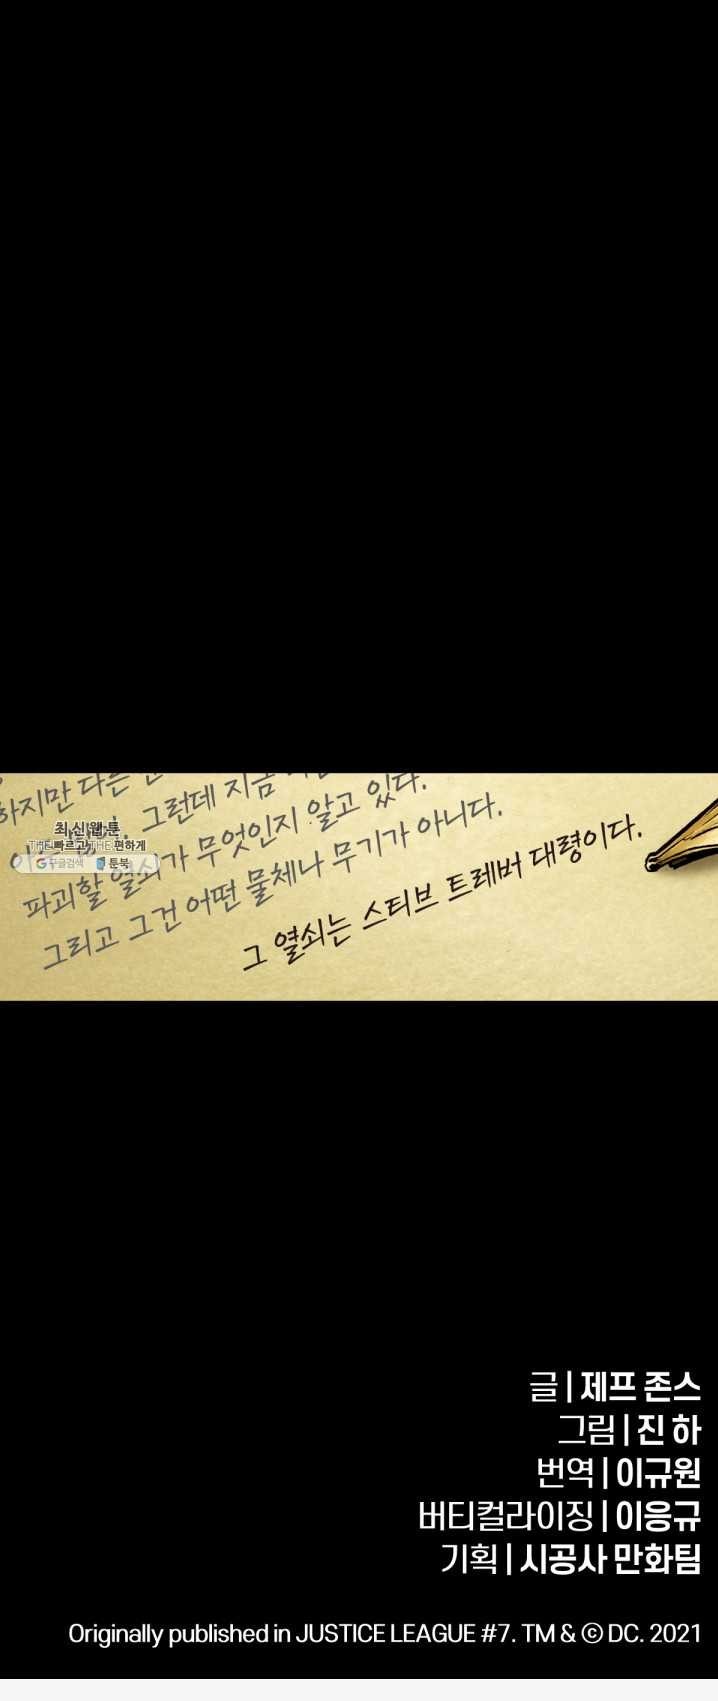 하지만 다른
그런데 지금
최신웹툰
THE빠르고, THE편하게
구글검색 툰북
파괴할 열쇠가 무엇인지 알고 있다.
그리고 그건 어떤 물체나 무기가 아니다.
그 열쇠는 스티브 트레버 대령이다.
글 | 제프 존스
그림 | 진 하
번역 | 이규원
버티컬라이징 | 이응규
기획 | 시공사 만화팀
Originally published in JUSTICE LEAGUE #7. TM & © DC. 2021